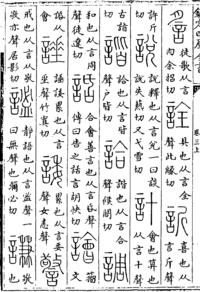 䚻 徒歌从言肉余招切 詮 具也从言全聲此緣切 訢 喜也从言斤聲
許斤切 說 說釋也从言兑一曰談說失爇切又弋雪切 計 會也算也从言从十
古詣切 諧 詥也从言皆聲戶皆切 詥 諧也从言合聲候閤切 調
和也从言周聲徒遼切 話 合會善言也从言𠯑聲傳曰告之話言胡快切 譮 籀文
諈 諈諉纍也从言垂聲竹寘切 諉 纍也从言委聲女恚切 警
戒也从言从敬敬亦聲居影切 謐 靜語也从言𥁑聲一曰無聲也彌必切 謙 敬